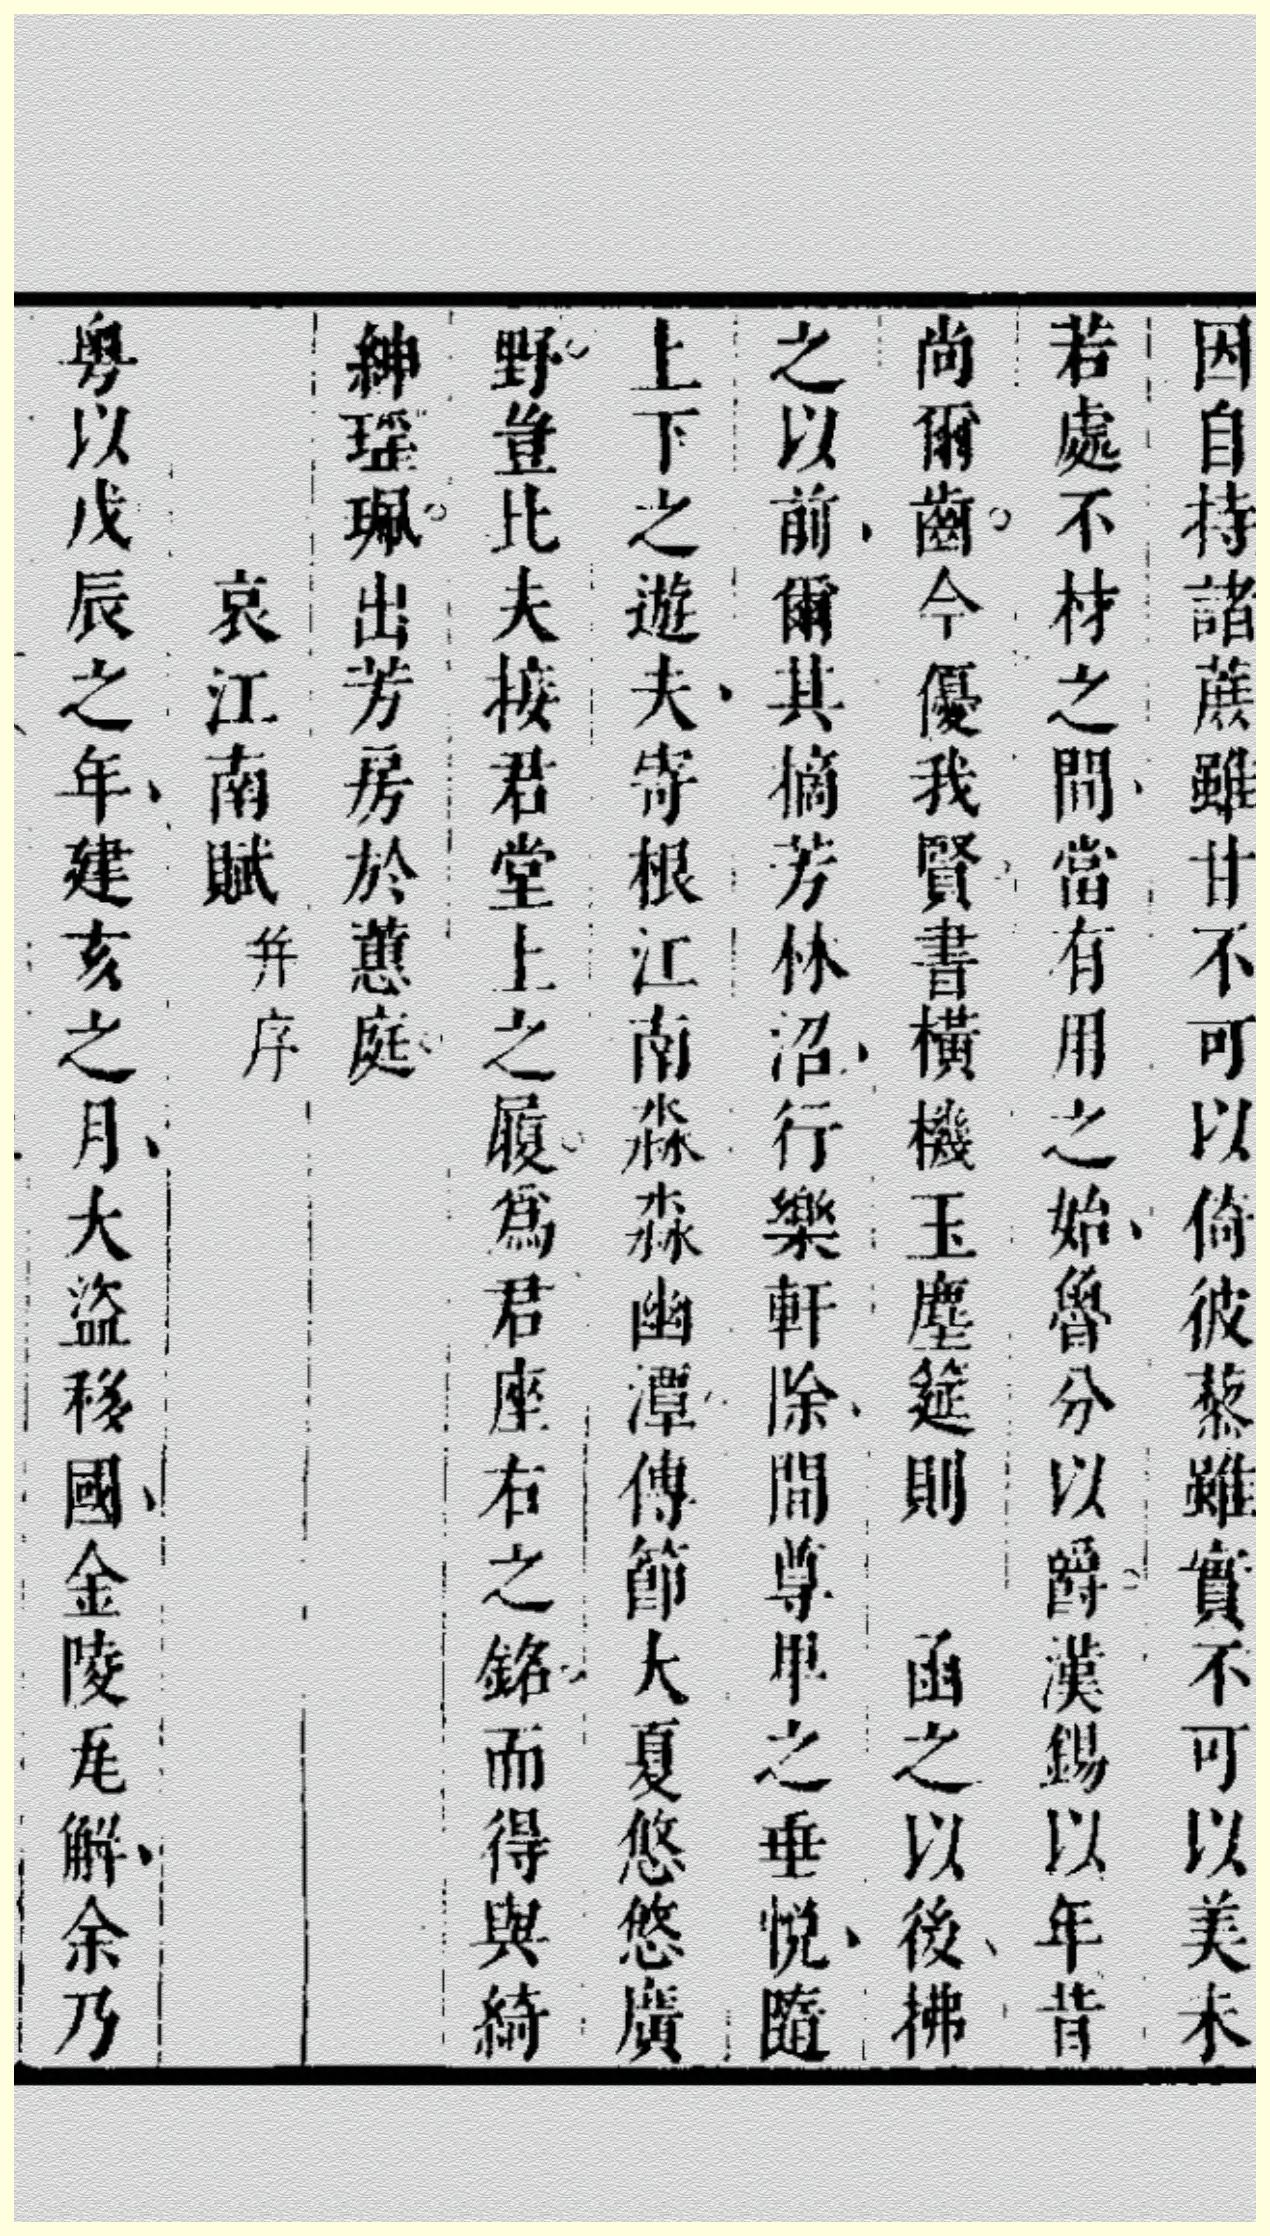 因自持諸蔗雖甘不可以倚彼藜雖實不可以美未
若處不材之間當有用之始魯分以爵漢錫以年昔
尚爾齒今優我賢書橫機玉塵筵則　函之以後拂
之以前爾其摘芳林沼行樂軒除間尊甲之垂悅隨
上下之遊夫寄根江南淼淼幽潭傳節大夏悠悠廣
野豈比夫接君堂上之履爲君座右之銘而得與綺
紳瑶珮出芳房於蕙庭
哀江南賦并序
粤以戊辰之年建亥之月大盜移國金陵瓦解余乃